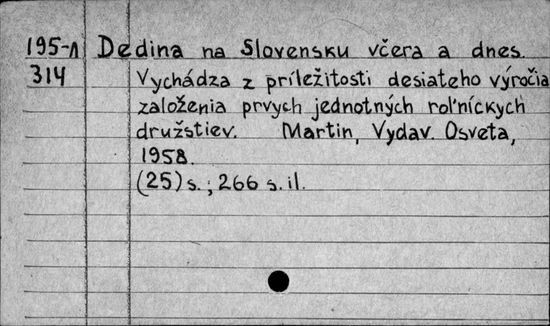 195-л Dedina na Slovensku včera a dnes.
314 Vychádza z príležitosti desiateho výročia
založenia prvych jednotných roľníckych
družstiev. Martin, Vydav. Osveta,
1958.
(25) s.; 266 s. il.